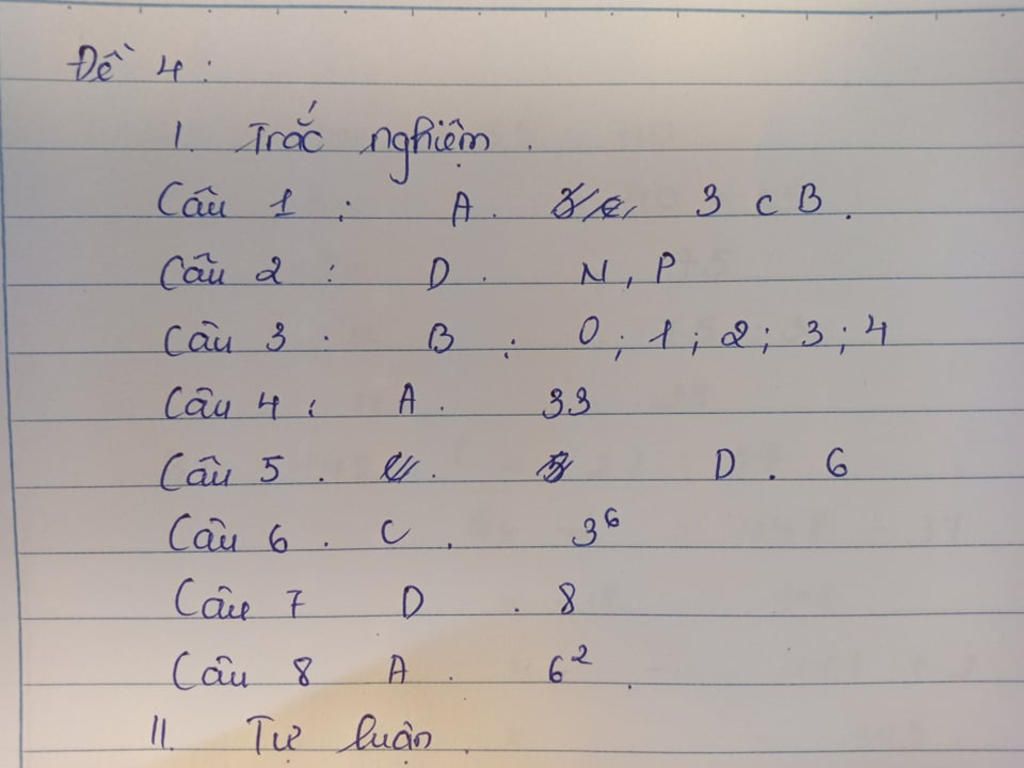 Đề 4:
I. Trắc nghiệm.
Câu 1: A. 3 c B.
Câu 2: D. N, P
Câu 3. B: 0; 1; 2; 3; 4
Câu 4: A. 33
Câu 5. D. 6
Câu 6. C. 3⁶
Câu 7 D. 8
Câu 8 A. 6².
II. Tự luận.